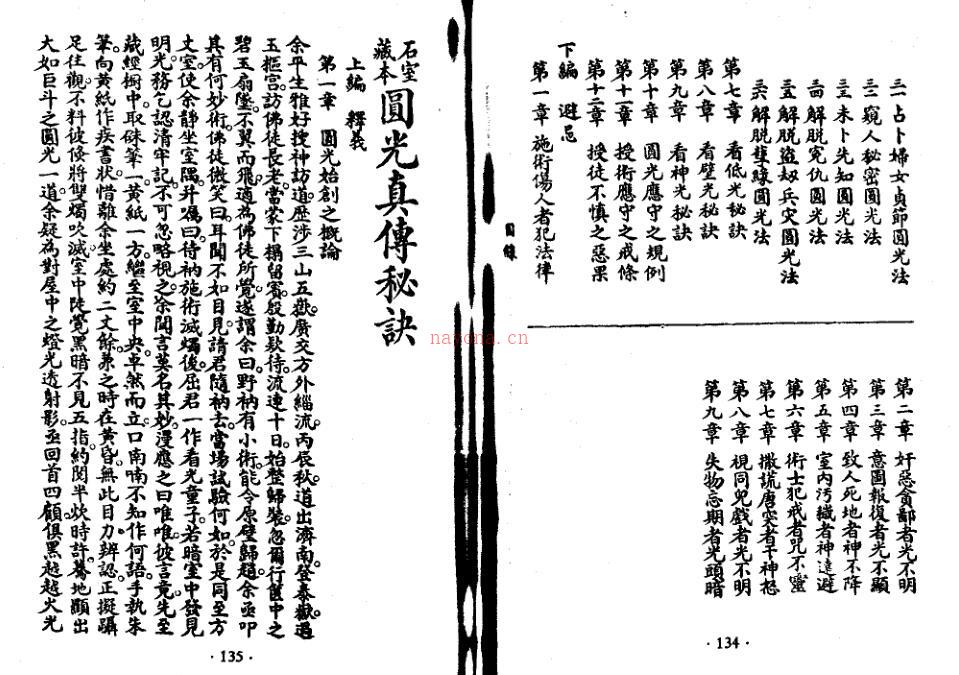 三一 占卜婦女貞節圓光法
三二 窺人秘密圓光法
三三 未卜先知圓光法
三四 解脱冤仇圓光法
三五 解脱盜刼兵灾圓光法
三六 解脱孽緣圓光法
第七章 看低光秘訣
第八章 看壁光秘訣
第九章 看神光秘訣
第十章 圓光應守之規例
第十一章 授術應守之戒條
第十二章 授徒不慎之惡果
下編 避忌
第一章 施術傷人者犯法律
第二章 奸惡貪鄙者光不明
第三章 意圖報復者光不顯
第四章 致人死地者神不降
第五章 室內汚穢者神遠避
第六章 術士犯戒者咒不靈
第七章 撒謊唐突者干神怒
第八章 視同兒戲者光不明
第九章 失物忘期者光頭暗
·134·
目錄
石室藏本 圓光真傳秘訣
上編 釋義
第一章 圓光始創之概論
余平生雅好搜神訪道。歷涉三山五嶽。廣交方外緇流。丙辰秋道出濟南。登泰嶽。過
玉樞宮。訪佛徒長老。當蒙下榻留賓。殷勤欵待。流連十日。始整歸裝。忽爾行篋中之
碧玉扇墜。不翼而飛。適為佛徒所覺。遂謂余曰。野衲有小術。能令原壁歸趙。余亟叩
其有何妙術。佛徒微笑曰。耳聞不如目見。請君隨衲去。當塲試驗何如。於是同至方
丈室。使余靜坐室隅。幷囑曰。待衲施術滅燭後。屈君一作看光童子。若暗室中發見
明光。務乞認清牢記。不可忽略視之。余聞言莫名其妙。漫應之曰唯唯。彼言竟。先至
藏經櫥中。取硃筆一。黃紙一方。繼至室中央。卓然而立。口南喃不知作何語。手執朱
筆。向黃紙作疾書狀。惜離余坐處。約二丈餘。兼之時在黃昏。無此目力辨認。正擬躡
足往觀。不料彼倏將雙燭吹滅。室中陡覺黑暗。不見五指。約閱半炊時許。驀地顯出
大如巨斗之圓光一道。余疑為對屋中之燈光透射影。亟回首四顧。俱黑越越火光
·135·
nayona.cn